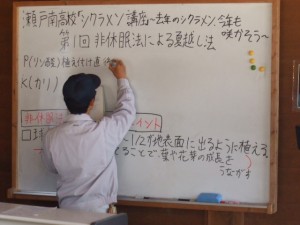 瀬戸南高校「シクラメン」講座～去年のシクラメン、今年も
咲かそう～
第1回 非休眠法による夏越し法
P(リン酸) 植え付け直後
K(カリ)
非休眠
ポイント
1/2が地表面に出るように植える。
ることで、葉や花芽の成長を
うながす